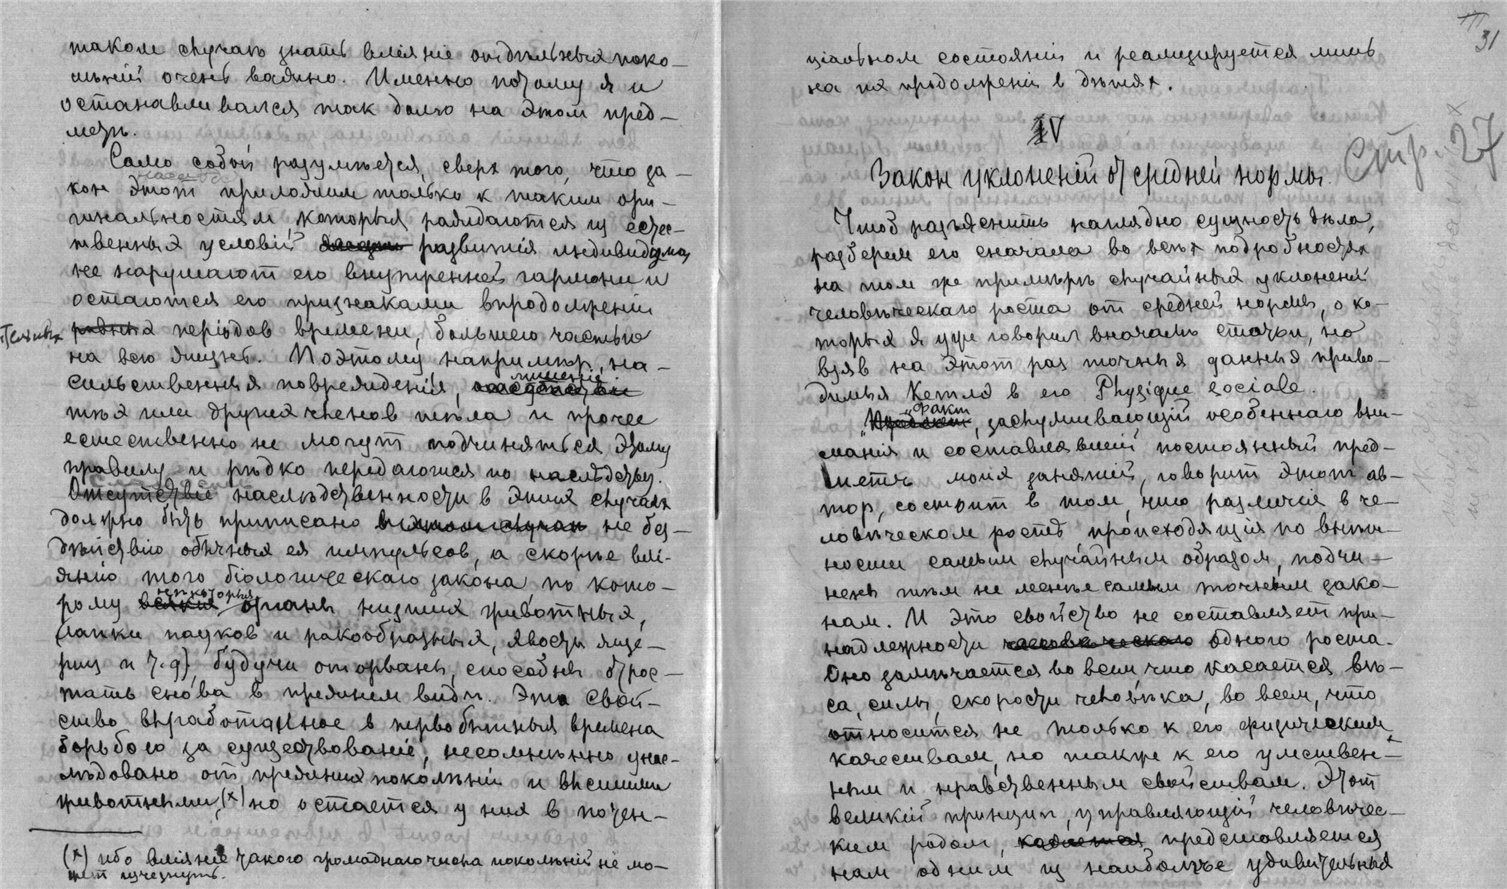 таком случаѣ знать вліяніе отдѣльныхъ поко-
лѣній очень важно. Именно поэтому я и
останавливался так долго на этом пред-
метѣ.
Само собой разумѣется, сверх того, что за-
кон этот приложим только к таким ори-
гинальностям, которыя рождаются из естес-
твенных условій развитія индивидуума,
не нарушают его внутренней гармоніи и
остаются его признаками впродолженіи
періодов времени, большею частью
на всю жизнь. Поэтому, напримѣр, на-
сильственныя поврежденія, лишенія
тѣх или других членов тѣла и прочее
естественно не могут подчиняться этому
правилу и рѣдко передаются по наслѣдству.
Отсутствіе наслѣдственности в этих случаях
должно быть приписано не без-
дѣйствію обычных ея импульсов, а скорѣе влі-
янію того біологическаго закона, по кото-
рому некоторыя органы низших животных,
(лапки пауков и ракообразных, хвосты яще-
риц и т.д), будучи оторваны, способны отрос-
тать снова в прежнем видѣ. Это свой-
ство выработанное в первобытныя времена
борьбою за существованіе, несомнѣнно унас-
лѣдовано от прежних поколѣній и высшими
животными, (х) но остается у них в потен-
(х) ибо вліяніе такого громаднаго числа поколѣній не мо-
жет исчезнуть.
31
ціальном состояніи и реализируется лишь
на их продолженіи в дѣтях.
IV
Стр. 27
Закон уклоненій от средней нормы.
Чтоб разъяснить наглядно сущность дѣла,
разберем его сначала во всѣх подробностях
на том же примѣрѣ случайных уклоненій
человѣческаго роста от средней нормы, о ко-
торых я уже говорил вначалѣ статьи, но
взяв на этот раз точныя данныя приво-
димыя Кетлэ в его Physique sociale.
„Факт, заслуживающій особеннаго вни-
манія и составлявшій постоянный пред-
мет моих занятій, говорит этот ав-
тор, состоит в том, что различія в че-
ловѣческом ростѣ происходящія по види-
мости самым случайным образом, подчи-
нены тѣм не менѣе самым точным зако-
нам. И это свойство не составляет при-
надлежности одного роста.
Оно замѣчается во всем что касается вѣ-
са, силы, скорости человѣка, во всем, что
относится не только к его физическим
качествам, но также к его умствен-
ным и нравственным свойствам. Этот
великій принцип, управляющій человѣчес-
ким родом, представляется
нам одним из наиболѣе удивительных